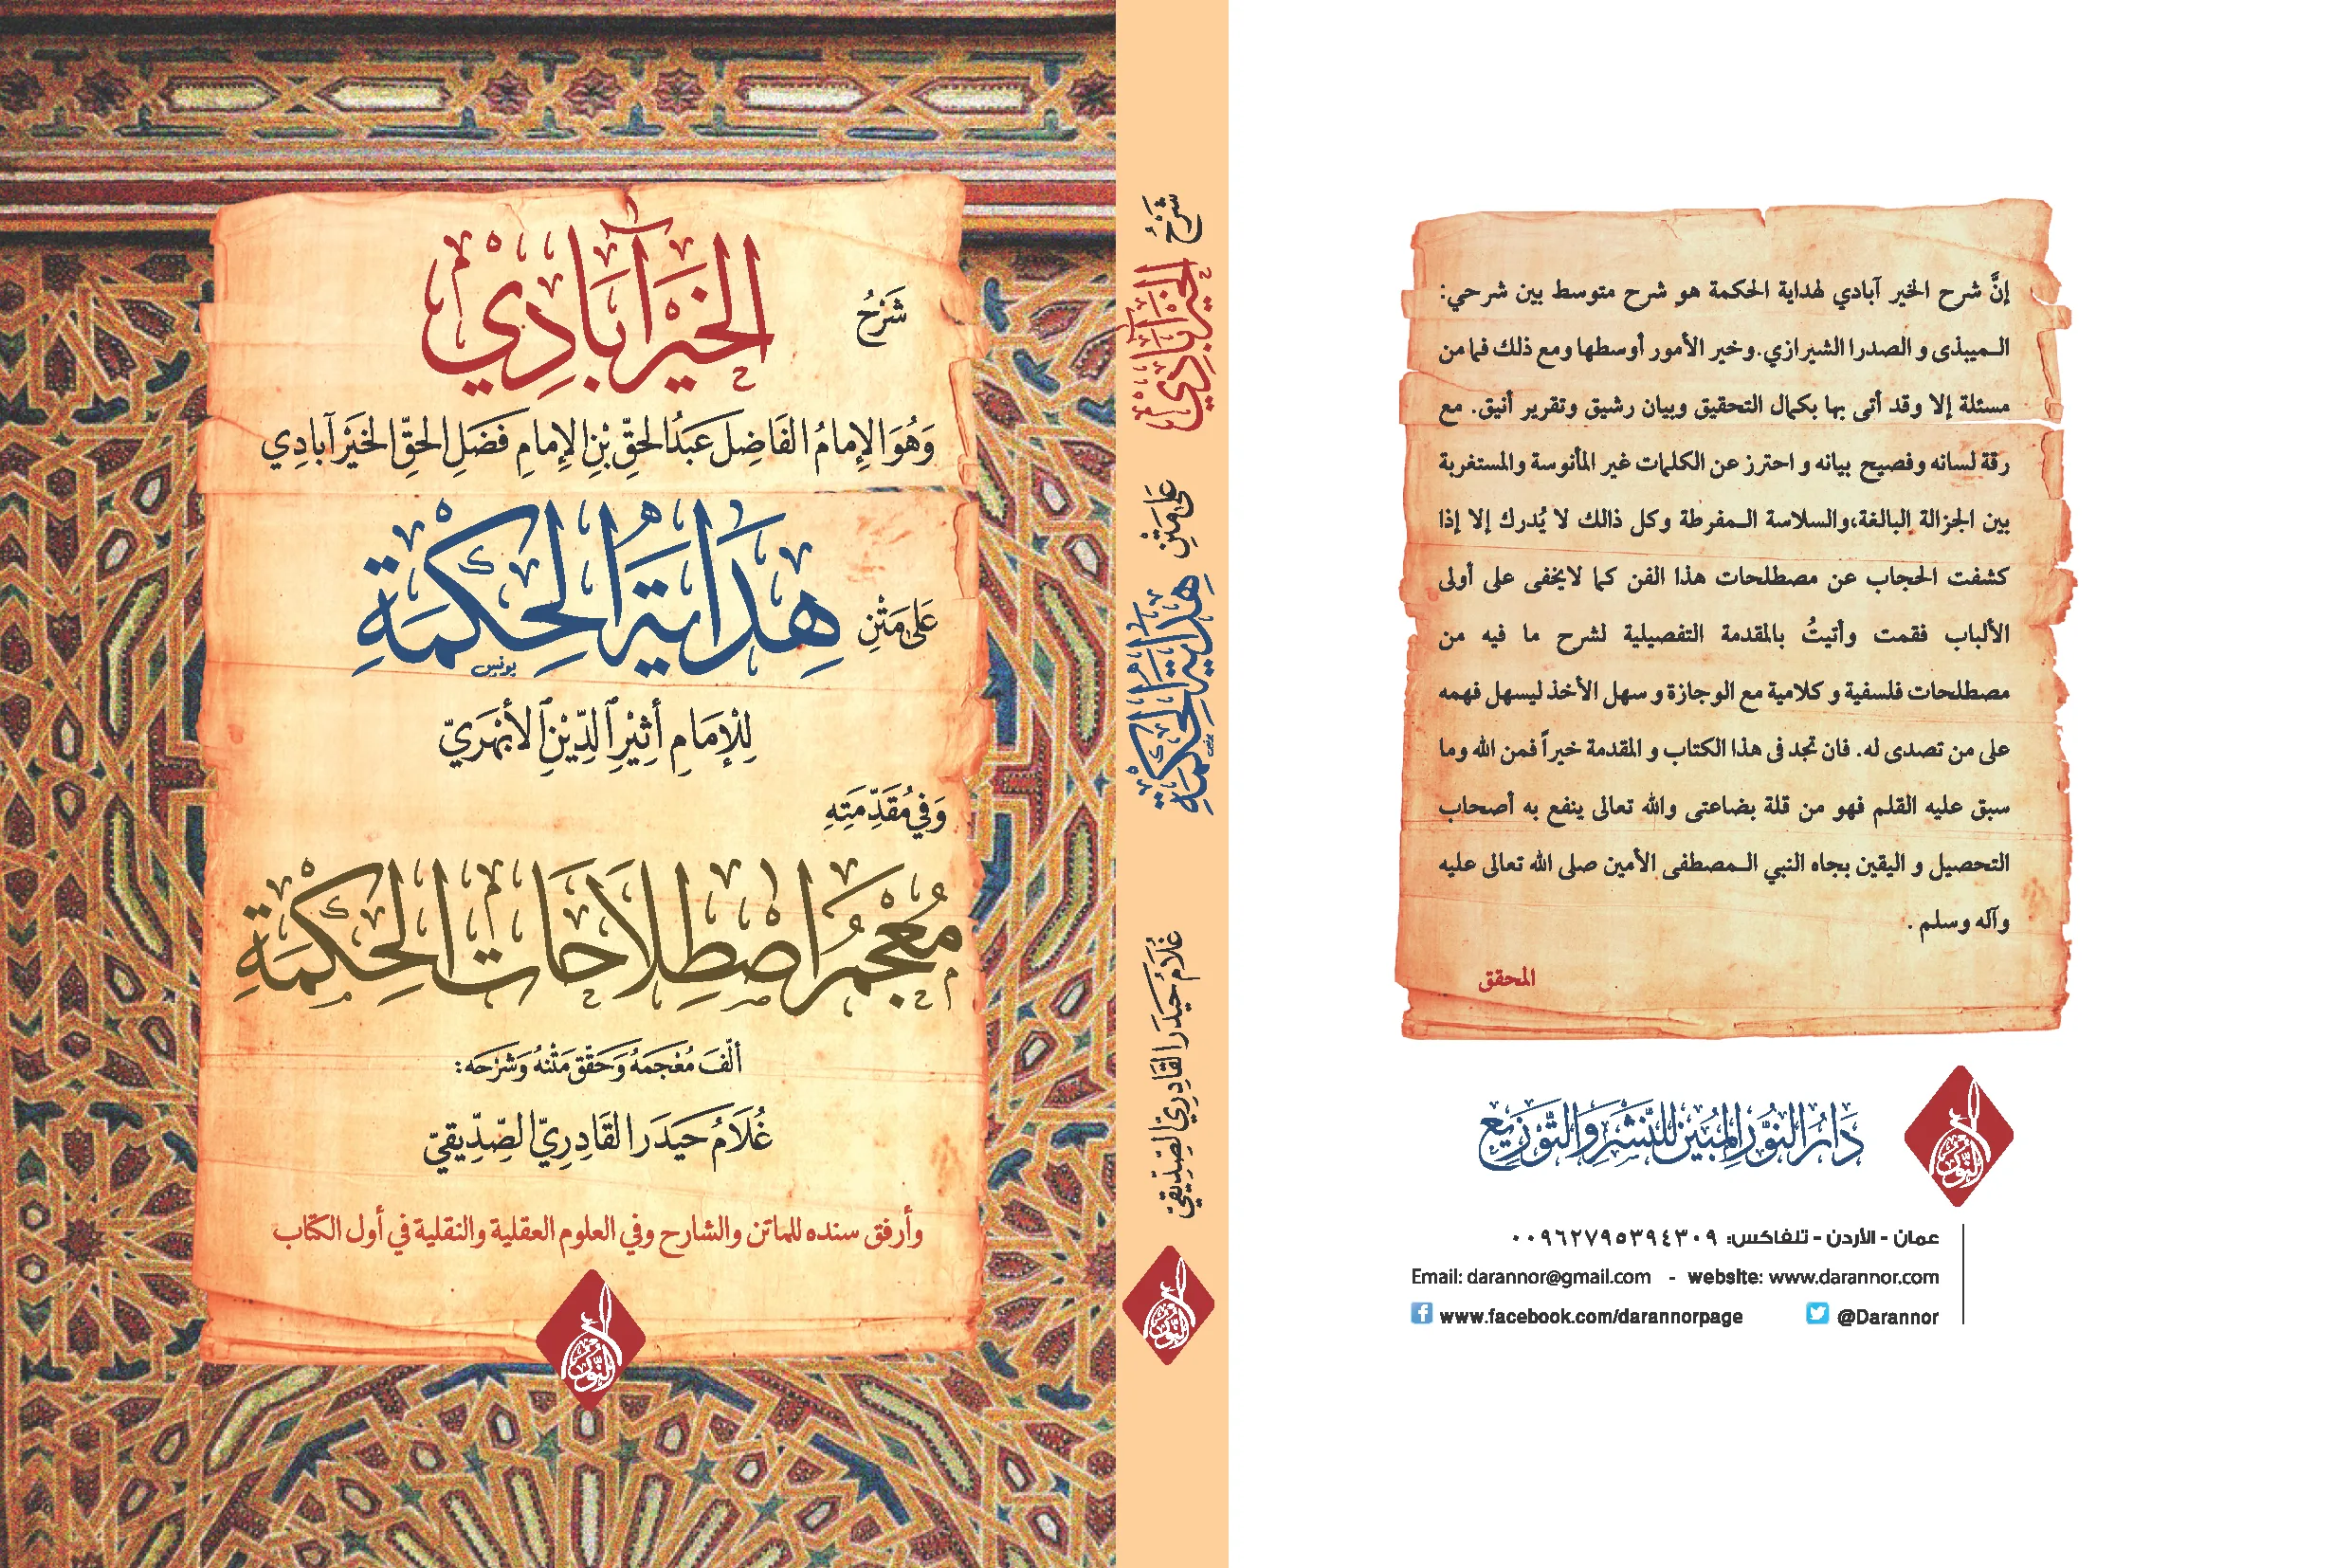 شَرْحُ
الخَيْرآبَادِيْ
وَهُوَ الإِمامُ الفَاضِل عَبدُ الحَقِّ بْنِ الإِمامِ فَضَلِ الحَقِّ الخَيْرآبادِي
عَلى مَتْنِ
هِدَايَةُ الحِكْمَةِ
يونس
لِلْإِمَامِ أَثِيْرِ ٱلدِّيْنِ ٱلأَبْهَرَيّ
وَفِي مُقَدِّمَتِهِ
مُعْجَمُ اصْطِلَاحَات الحِكْمَةِ
ألّفَ مُعْجَمَهُ وَحَقّقَ مَتْنهُ وَشَرْحَه:
غُلَامُ حَيدَر القَادِرِيّ الصِّدِّيقيّ
وأرفق سنده للماتن والشارح وفي العلوم العقلية والنقلية في أول الكتاب
النُّور
شَرْحُ
الخَيْرآبَادِيْ
عَلى مَتْنِ
هِدَايَةُ الحِكْمَةِ
يونس
غُلَامُ حَيدَر القَادِرِيّ الصِّدِّيقيّ
النُّور
إنَّ شرح الخير آبادي لهداية الحكمة هو شرح متوسط بين شرحي:
الـميبذى و الصدرا الشيرازي.وخير الأمور أوسطها ومع ذلك فما من
مسئلة إلا وقد أتى بها بكمال التحقيق وبيان رشيق وتقرير أنيق. مع
رقة لسانه وفصيح بيانه و احترز عن الكلمات غير المأنوسة والمستغربة
بين الجزالة البالغة،والسلاسة الـمفرطة وكل ذالك لا يُدرك إلا إذا
كشفت الحجاب عن مصطلحات هذا الفن كما لايخفى على أولى
الألباب فقمت وأتيتُ بالمقدمة التفصيلية لشرح ما فيه من
مصطلحات فلسفية و كلامية مع الوجازة و سهل الأخذ ليسهل فهمه
على من تصدى له. فان تجد فى هذا الكتاب و المقدمة خيراً فمن الله وما
سبق عليه القلم فهو من قلة بضاعتى والله تعالى ينفع به أصحاب
التحصيل و اليقين بجاه النبي الـمصطفى الأمين صلى الله تعالى عليه
وآله وسلم .
المحقق
دَارُ النُّورِ المُبَيْنِ لِلنَّشْرِ وَالتَّوْزِيْع
النُّور
عمان - الأردن - تلفاكس: ٠٠٩٦٢٧٩٥٣٩٤٣٠٩
Email: darannor@gmail.com - website: www.darannor.com
www.facebook.com/darannorpage @Darannor